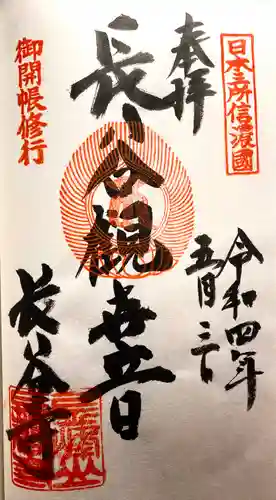 奉拝
日本三所信濃國
令和四年
五月三日
長谷観世音
御開帳修行
長谷寺